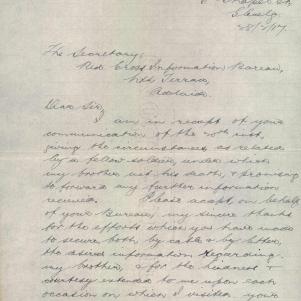 Chapel St
Glenelg
28/3/17
The Secretary,
Red Cross Information Bureau,
Nth Terrace,
Adelaide.
Dear Sir,
I am in receipt of your
communication of the 20th inst,
giving the circumstances as related
by a fellow soldier, under which
my brother met his death, & promising
to forward any further information
received. Please accept, on behalf
of your Bureau, my sincere thanks
for the efforts which you have made
to secure both by cable & by letter,
the desired information regarding
my brother, & for the kindness &
courtesy extended to me upon each
occasion on which I visited your